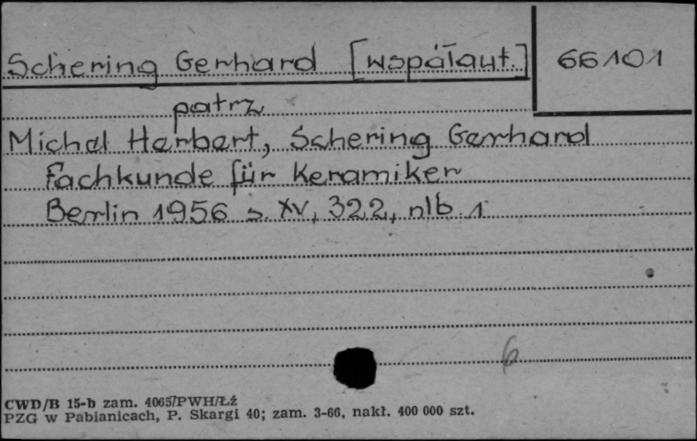 Schering Gerhard [współaut.] 66101
patrz
Michal Herbert, Schering Gerhard
Fachkunde für Keramiker
Berlin 1956 s. XV, 322, nlb 1
6
CWD/B 15-b zam. 4065/PWH/Łź
PZG w Pabianicach, P. Skargi 40; zam. 3-66, nakł. 400 000 szt.